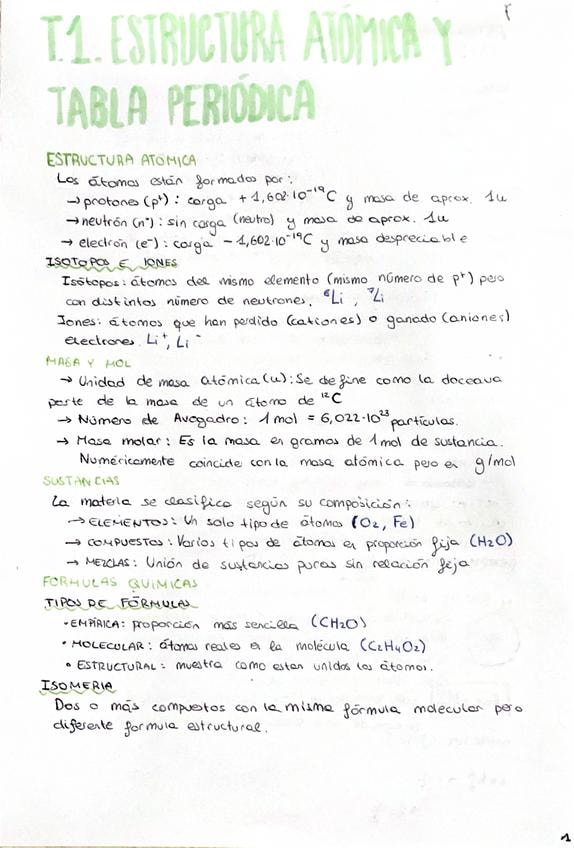 T.1. ESTRUCTURA ATÓMICA Y
TABLA PERIÓDICA
ESTRUCTURA ATÓMICA
Los átomos están formados por:
→ protones (p⁺): carga + 1,602·10⁻¹⁹C y masa de aprox. 1u
→ neutrón (n°): sin carga (neutro) y masa de aprox. 1u
→ electrón (e⁻): carga − 1,602·10⁻¹⁹C y masa despreciable
ISÓTOPOS E IONES
Isótopos: átomos del mismo elemento (mismo número de p⁺) pero
con distintos número de neutrones. ⁶Li, ⁷Li
Iones: átomos que han perdido (cationes) o ganado (aniones)
electrones. Li⁺, Li⁻
MASA Y MOL
→ Unidad de masa atómica (u): Se define como la doceava
parte de la masa de un átomo de ¹²C
→ Número de Avogadro: 1 mol = 6,022·10²³ partículas.
→ Masa molar: Es la masa en gramos de 1 mol de sustancia.
Numéricamente coincide con la masa atómica pero en g/mol
SUSTANCIAS
La materia se clasifica según su composición:
→ ELEMENTOS: Un solo tipo de átomos (O₂, Fe)
→ COMPUESTOS: Varios tipos de átomos en proporción fija (H₂O)
→ MEZCLAS: Unión de sustancias puras sin relación fija
FÓRMULAS QUÍMICAS
TIPOS DE FÓRMULAS
• EMPÍRICA: proporción más sencilla (CH₂O)
• MOLECULAR: átomos reales en la molécula (C₂H₄O₂)
• ESTRUCTURAL: muestra como estan unidos los átomos.
ISOMERIA
Dos o más compuestos con la misma fórmula molecular pero
diferente formula estructural.
1